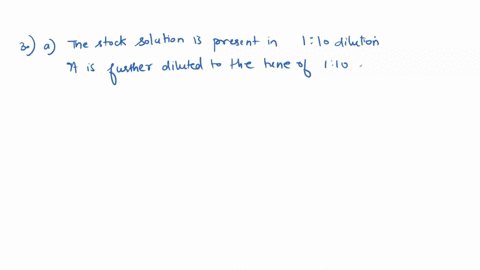 30) a) The stock solution is present in 1:10 dilution
It is further diluted to the tune of 1:10.